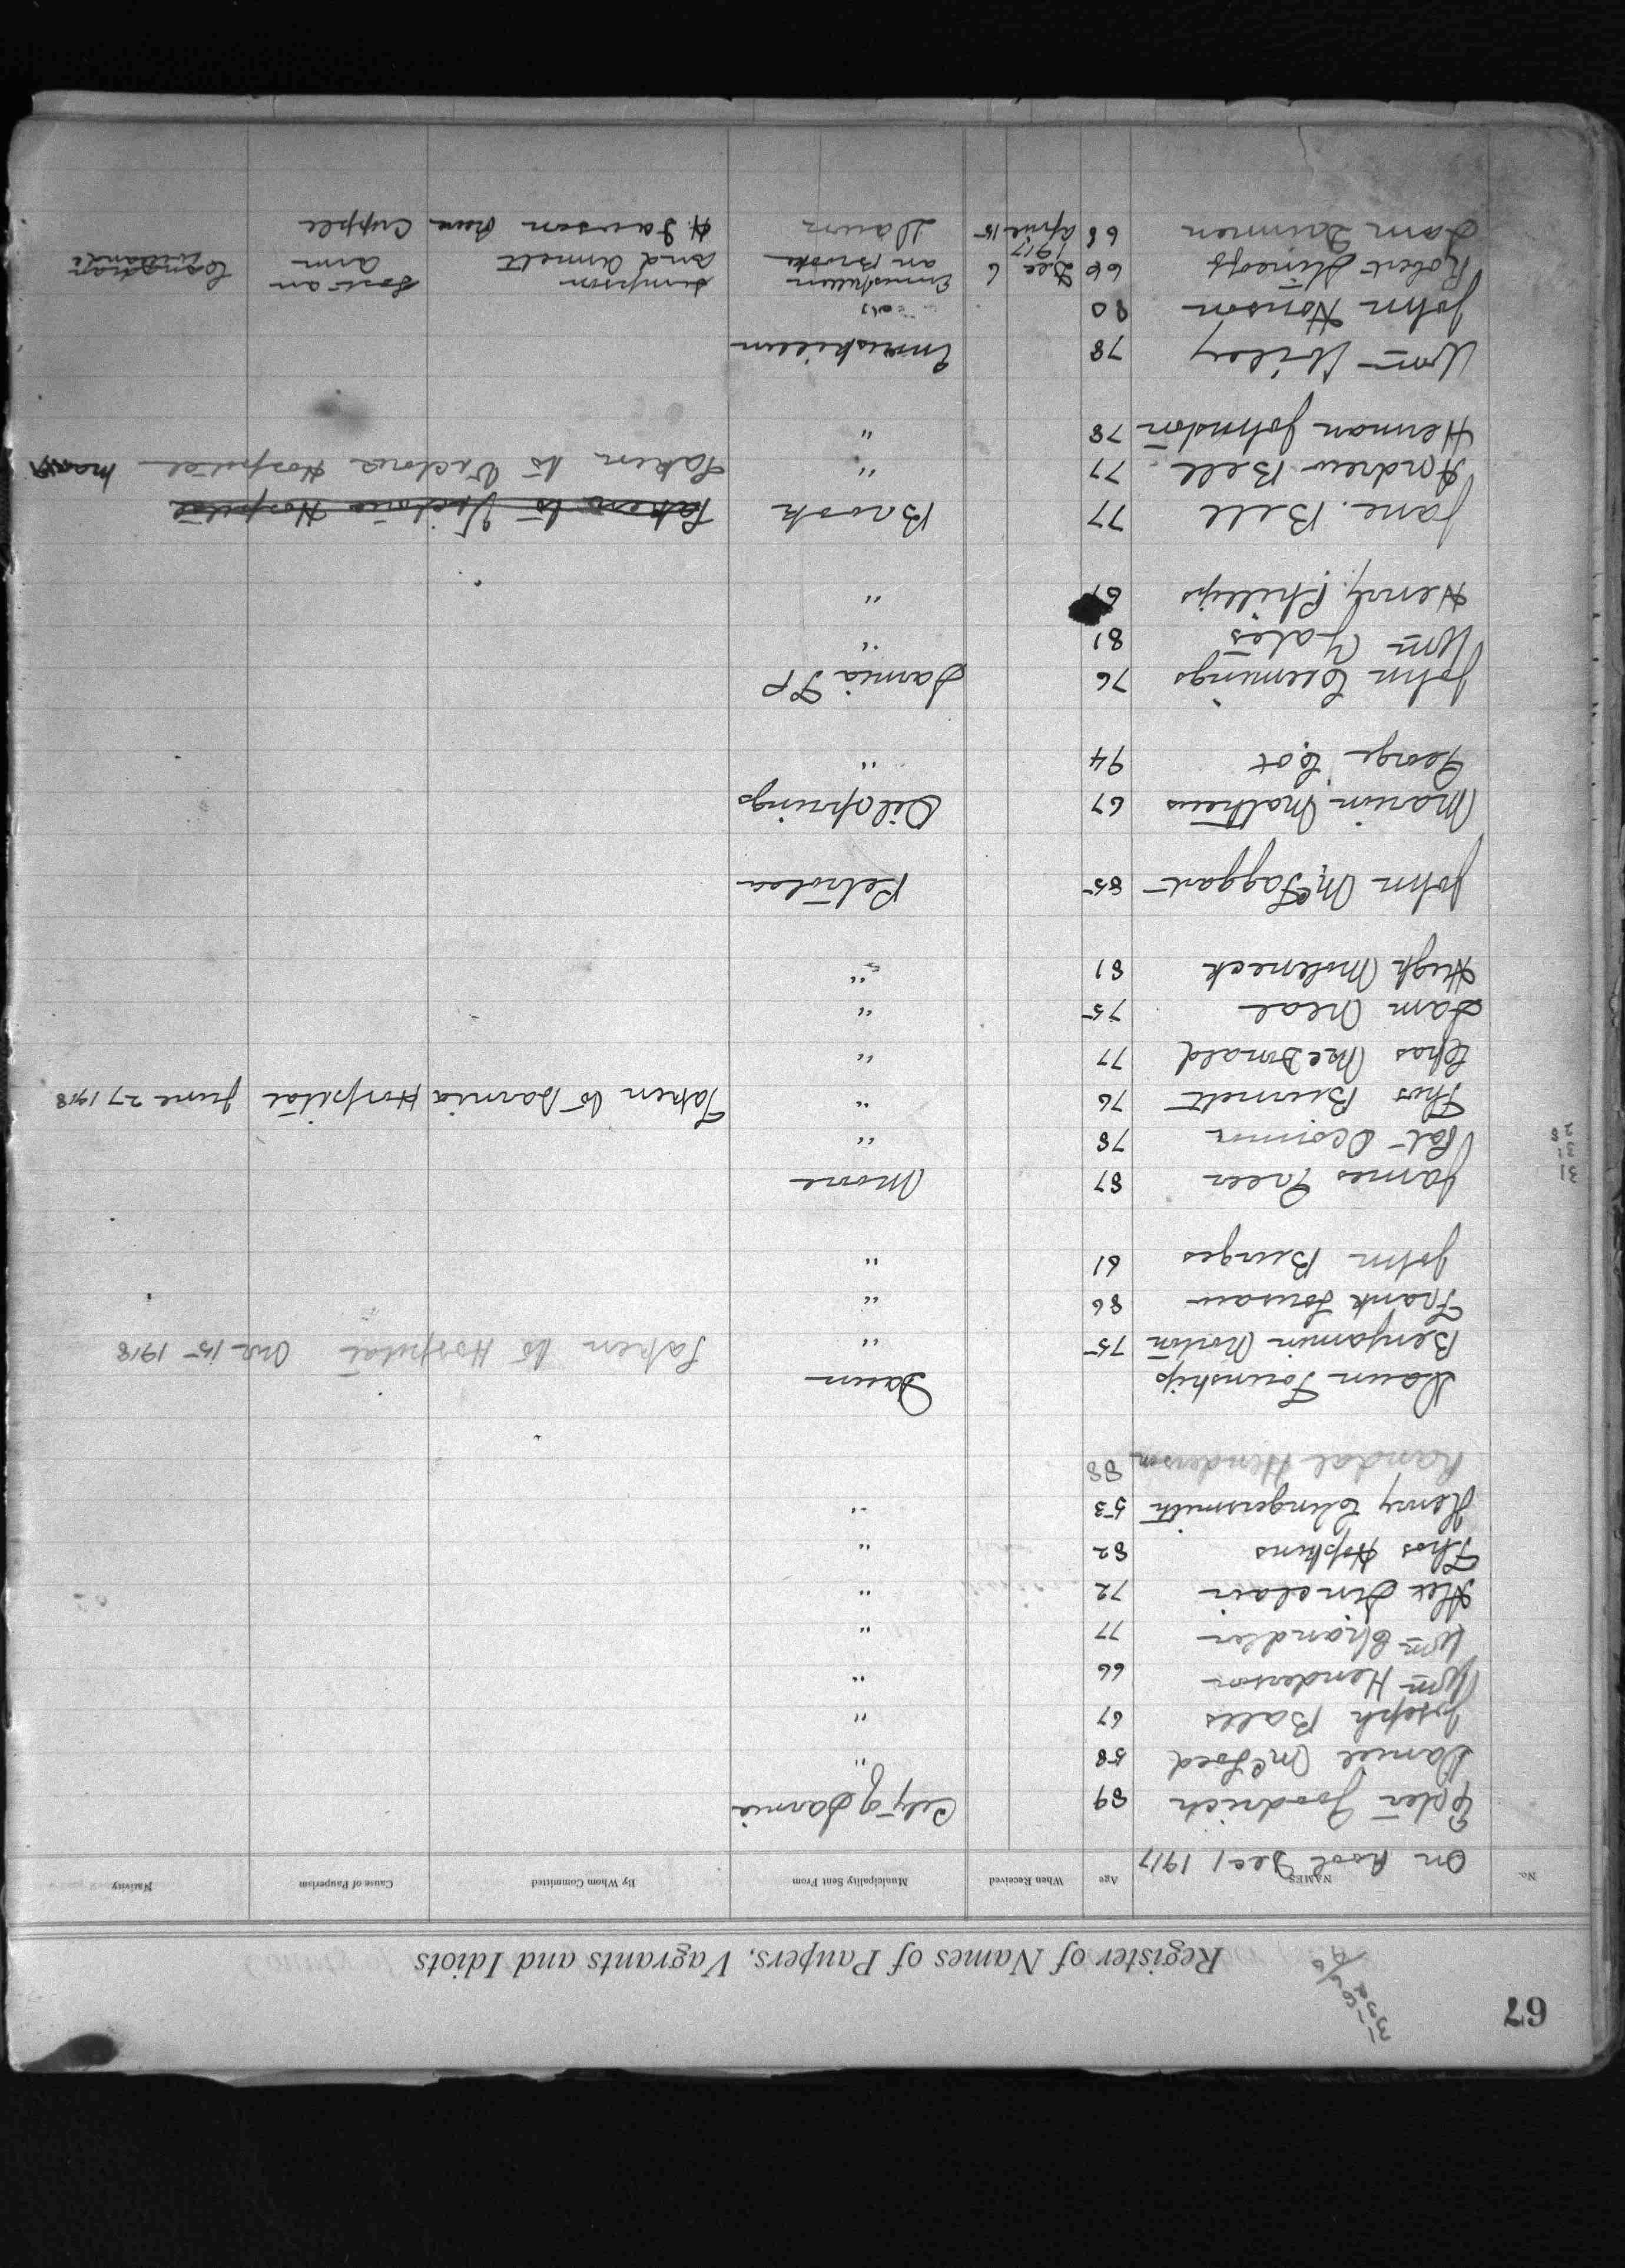 67
Register of Names of Paupers, Vagrants and Idiots
No. NAMES Age When Received Municipality Sent From By Whom Committed Cause of Pauperism Nativity
On Rool Dec 1 1917
Goodrich 89 City of Sarnia
Daniel 58 "
Joseph Balls 67 "
Wm Henderson 66 "
Wm Chandler 77 "
Alex Sinclair 72 "
Thos Hopkins 82 "
Henry Clingersmith 53 "
Randal Henderson 88
Dawn Township Dawn
Benjamin Norton 75 " Taken to Hospital 15 1918
Frank 86 "
John Burges 61 "
James Greer 87 Moore
Pat Oconnor 78 "
Thos Burnett 76 " Taken to Sarnia Hospital June 27 1918
Chas McDonald 77 "
Sam Neal 75 "
Hugh 81 "
John McTaggart 85 Petrolea
Marion Mathews 67 Oilsprings
George Cox 94 "
John Clemmings 76 Sarnia TP
Wm Yates 81 "
Henry Phillips 61 "
Jane Bell 77 Brook Taken to Victoria Hospital
Andrew Bell 77 " Taken to Victoria Hospital
Herman Johnston 78 "
Wm Wiley 78 Enniskillen
John 80 "
Robert 66 Dec 6 1917 Enniskillen an Brooke Simpson and Annett Lost an arm
Sam 68 April 15 Dawn Cripple
31
31
28